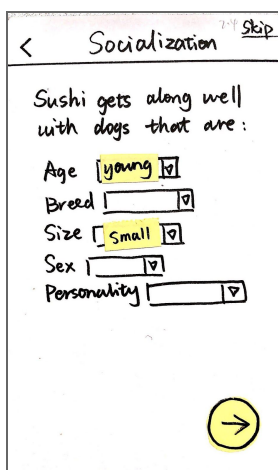 < Socialization 2-4 Skip
Sushi gets along well
with dogs that are:
Age young
Breed
Size Small
Sex
Personality